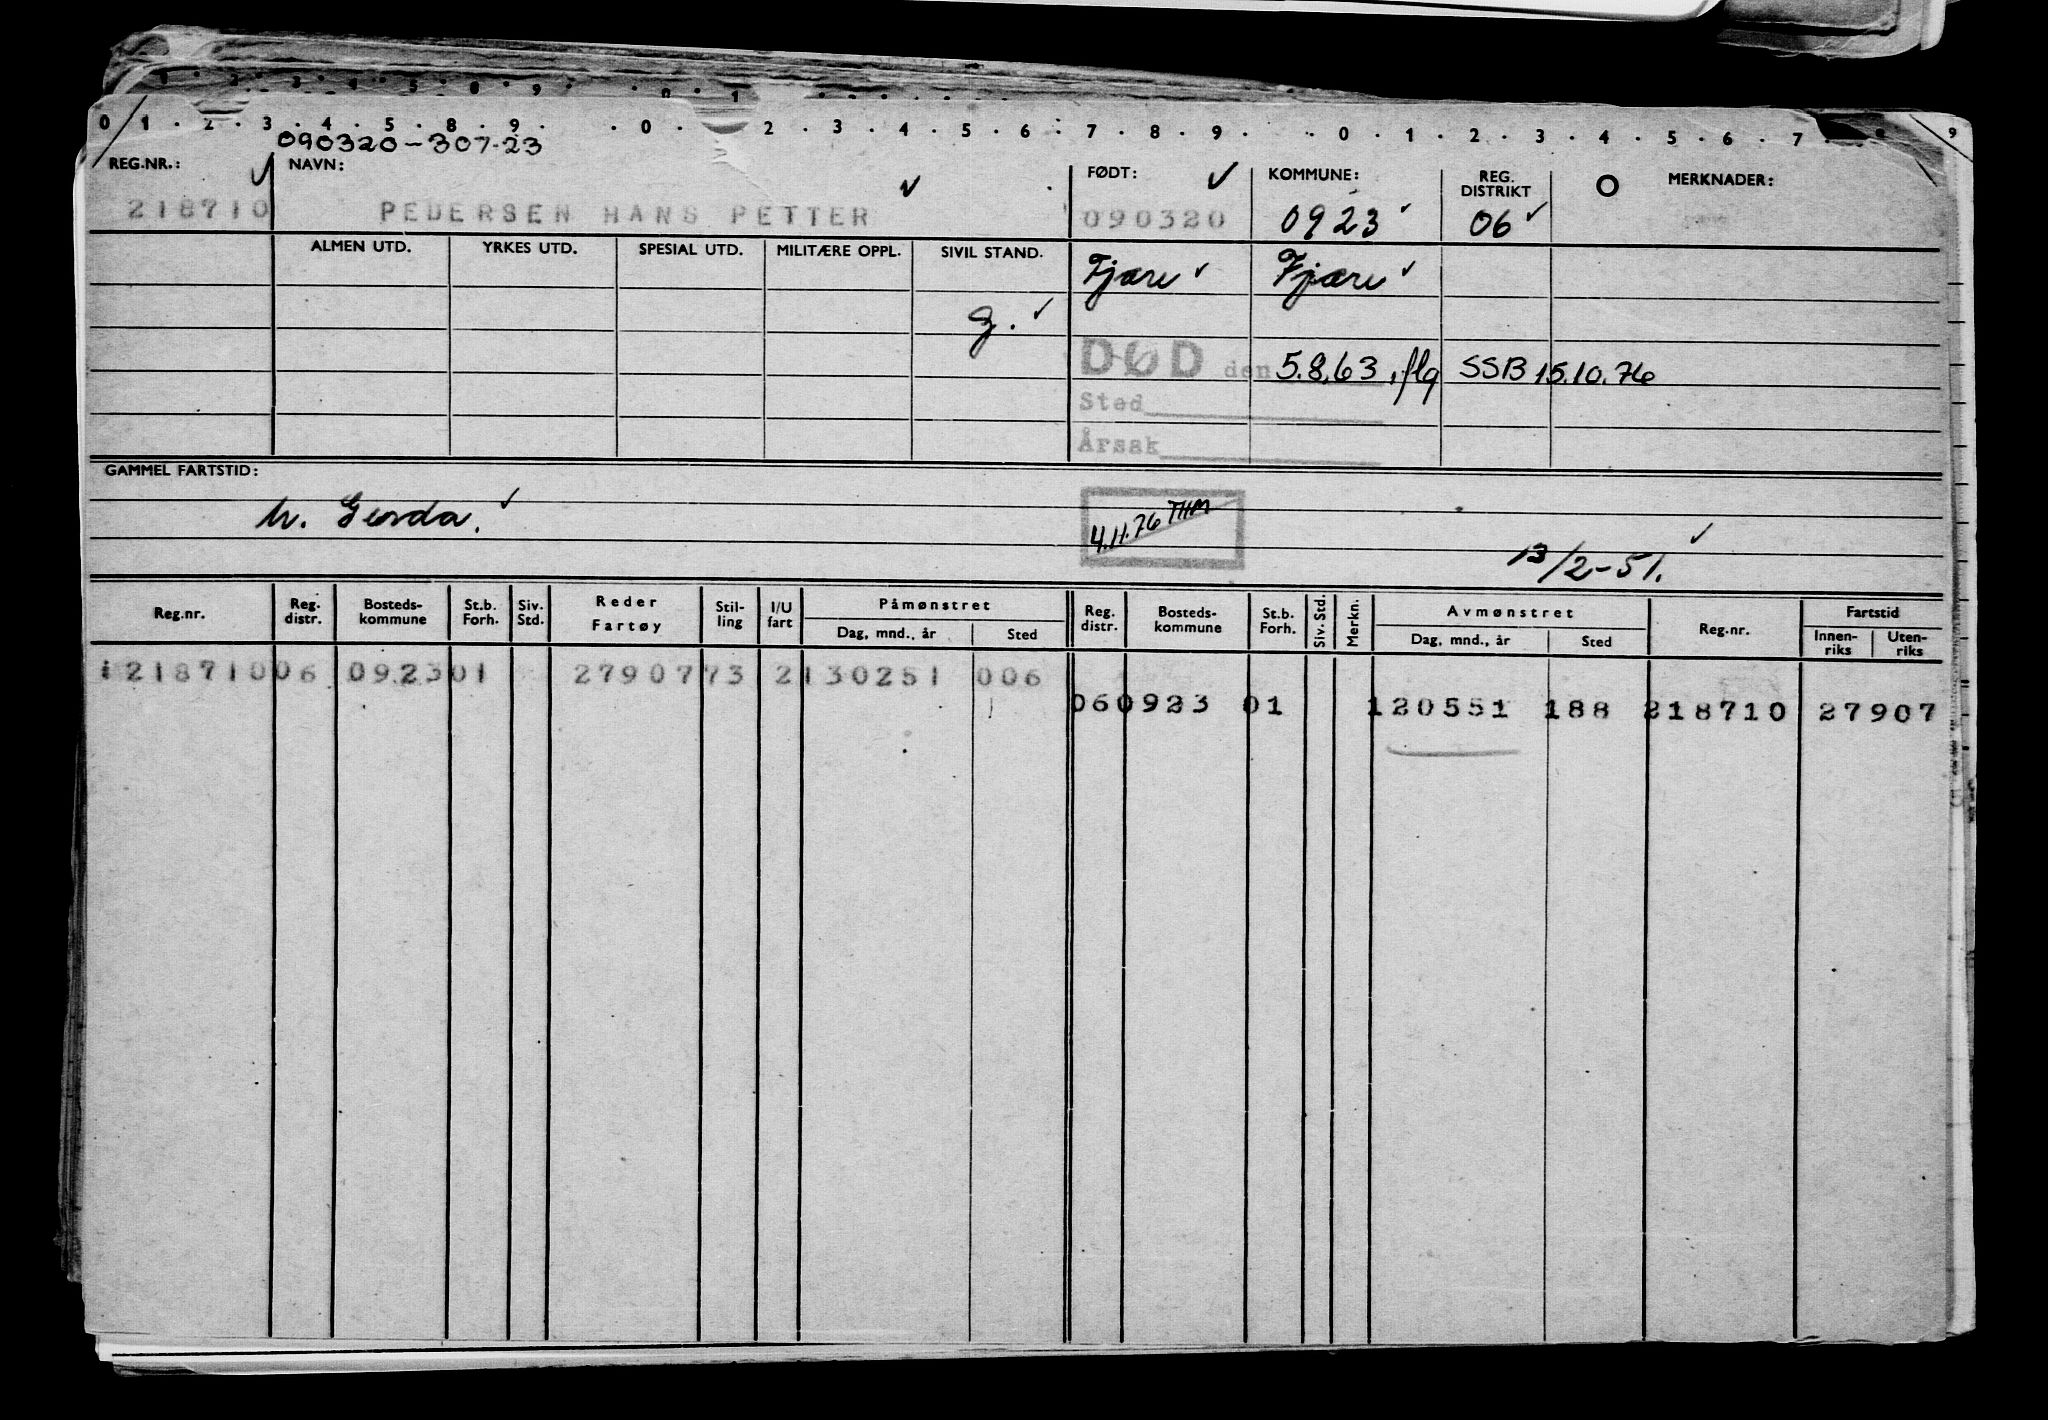 0 1 . 2 . 3 . 4 . 5 . 8 . 9 . . 0 . 2 . 3 . 4 . 5 . 6 . 7 . 8 . 9 . . 0 . 1 . 2 . 3 . 4 . 5 . 6 . 7 . 9
090320-307-23
REG.NR.: NAVN: FØDT: KOMMUNE: REG. DISTRIKT MERKNADER:
218710 PEDERSEN HANS PETTER 090320 0923 06
ALMEN UTD. YRKES UTD. SPESIAL UTD. MILITÆRE OPPL. SIVIL STAND. Fjære Fjære
g.
DØD den 5.8.63, flg SSB 15.10.76
Sted
Årsak
GAMMEL FARTSTID:
m. Gerda.
4.11.76 THM
13/2-51.
Reg.nr. Reg. distr. Bosteds-kommune St.b. Forh. Siv. Std. Reder Fartøy Stil-ling I/U fart Påmønstret Dag, mnd., år Sted Reg. distr. Bosteds-kommune St.b. Forh. Siv. Std. Merkn. Avmønstret Dag, mnd., år Sted Reg.nr. Fartstid Innen-riks Uten-riks
1218710 06 0923 01 27907 73 2 130251 006
06 0923 01 120551 188 218710 27907